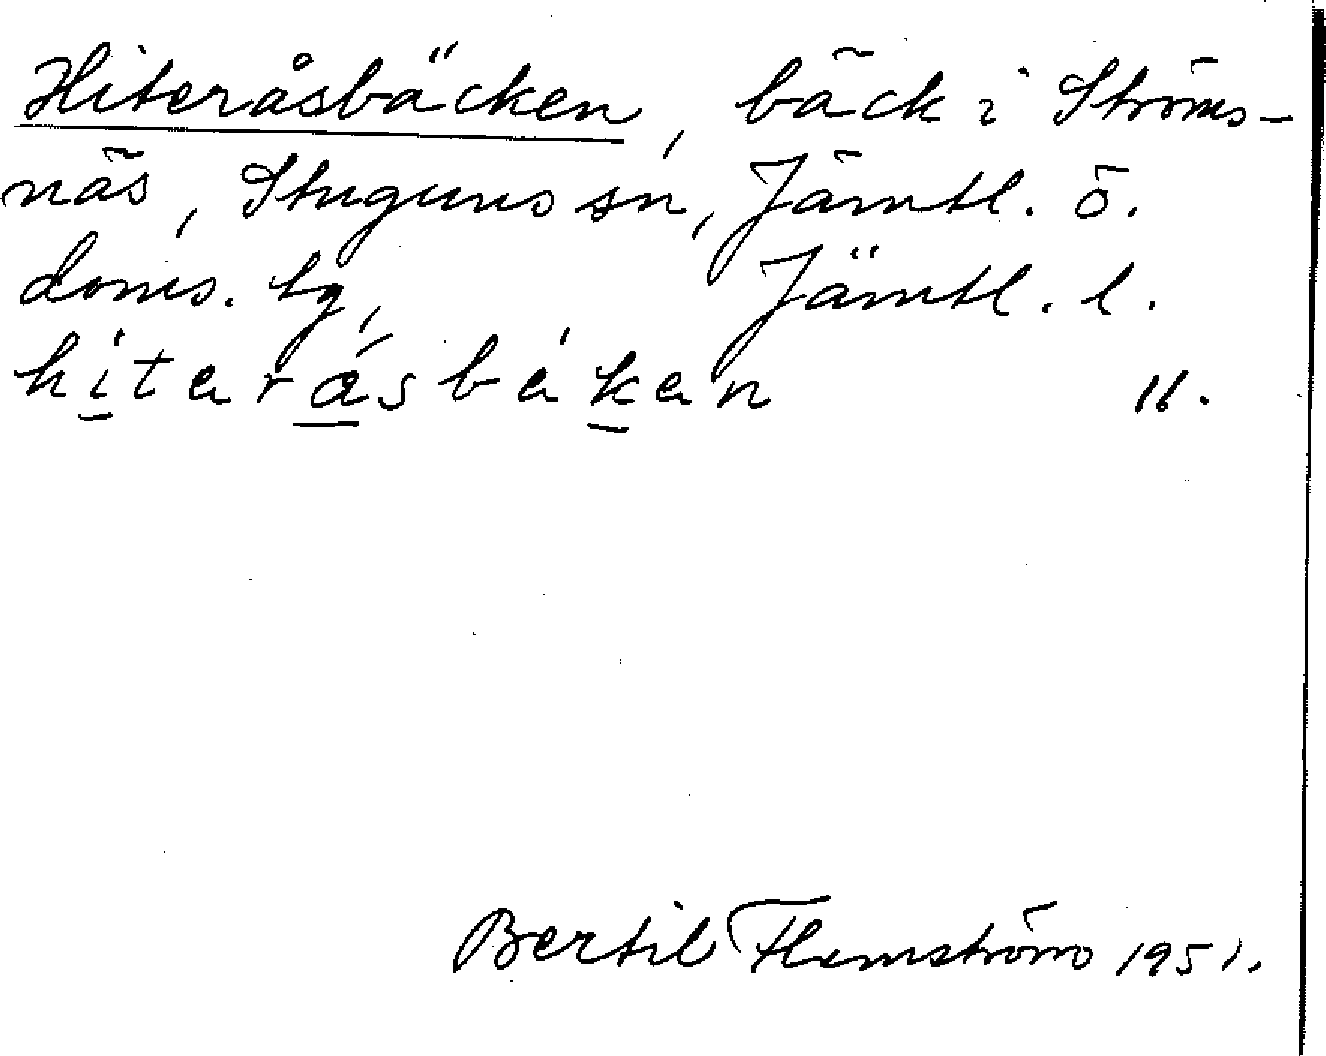 Hiteråsbäcken, bäck i Ströms-
näs, Stuguns sn, Jämtl. ö.
doms. tg, Jämtl. l.
hi̲tarå̲sbák̲an 11.
Bertil Flemström 1951.